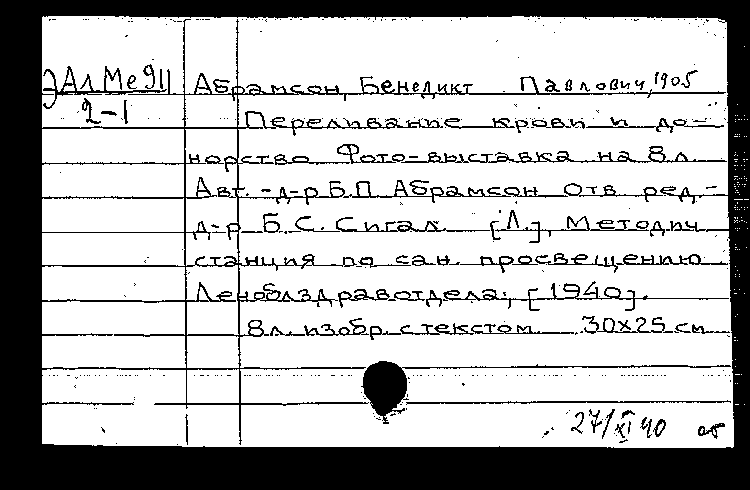 ЭАлМе911
2-1
Абрамсон, Бенедикт Павлович, 1905
Переливание крови и до-
норство. Фото-выставка на 8 л.
Авт. - д-р Б.П. Абрамсон Отв. ред. -
д-р Б.С. Сигал. [Л.], Методич.
станция по сан. просвещению
Леноблздравотдела, [1940].
8 л. изобр. с текстом. 30х25 см
27/XI 40